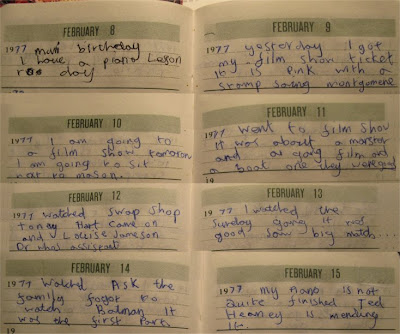 FEBRUARY 8
1977 mum birthday
I have a piano Leson
day
FEBRUARY 9
1977 yesterday I got
my film show ticket
it is Pink with a
stamp saing montgomene
FEBRUARY 10
1977 I am going to
a film show tomorow
I am going to sit
to
FEBRUARY 11
1977 Went to film show
It was about a monster
and a gang film and
a boat one they were good
19
FEBRUARY 12
1977 watched swap shop
Toney Hart came on
and Louise Jameson
Dr whos assistant
FEBRUARY 13
1977 I watched the
Sunday gang it was
good saw big match...
FEBRUARY 14
1977 Watched Ask the
family fogot to
watch Batman It
was the first Part.
FEBRUARY 15
1977 my Pano is not
quite finished Ted
Heaney is mending
it.
19